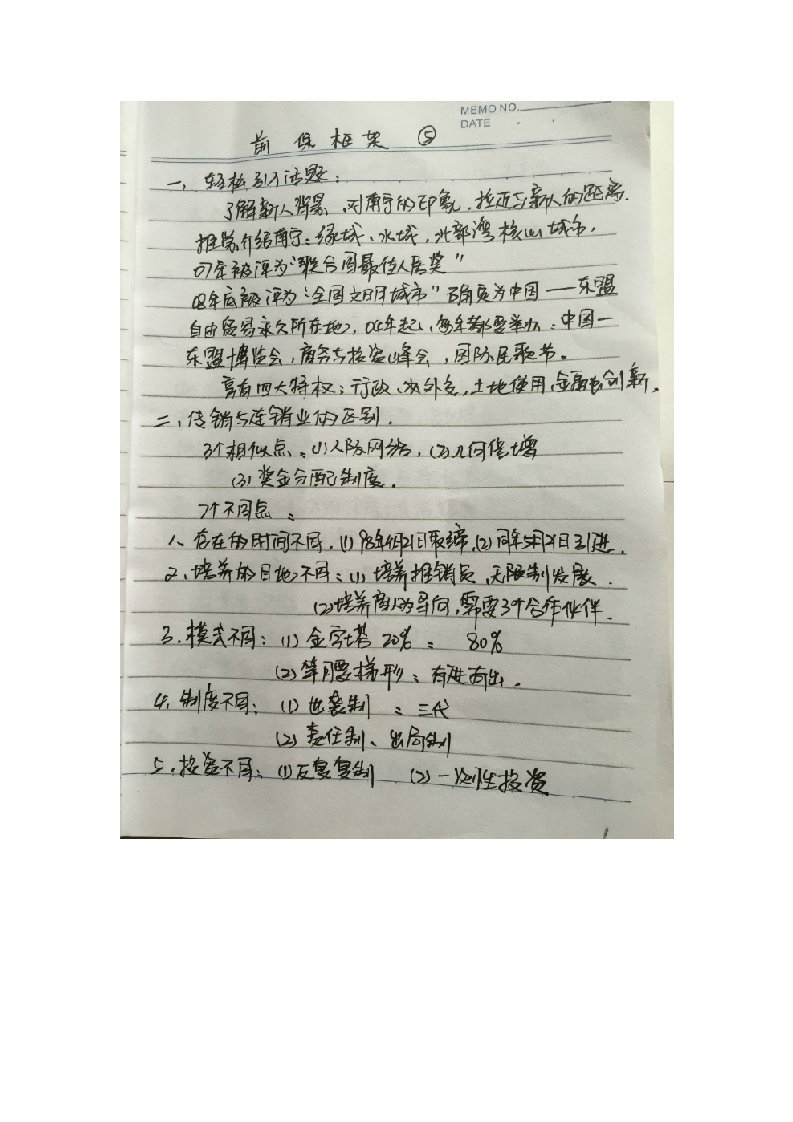 MEMO NO.
DATE
前 保 框 架 ⑤
一、轻松引入话题：
了解新人背景、对南宁的印象，拉近与新人的距离.
推荐介绍南宁：绿城、水城，北部湾核心城市。
07年被评为“联合国最佳人居奖”
08年底被评为“全国文明城市”确定为中国——东盟
自由贸易永久所在地，04年起，每年都要举办：中国—
东盟博览会，商务与投资峰会，国际民歌节。
享有四大特权：行政、外交，土地使用，金融创新。
二、传销与连锁业的区别.
3个相似点：(1)人际网络，(2)几何倍增
(3)奖金分配制度.
7个不同点：
1、存在的时间不同.(1)98年4月21日取缔.(2)同年5月21日引进.
2、培养的目地不同：(1)培养推销员，无限制发展.
(2)培养商人的导向，需要3个合作伙伴.
3、模式不同：(1)金字塔 20%：80%
(2)等腰梯形：有进有出.
4、制度不同：(1)世袭制：三代
(2)责任制、出局制
5、投资不同：(1)反复复制 (2)一次性投资